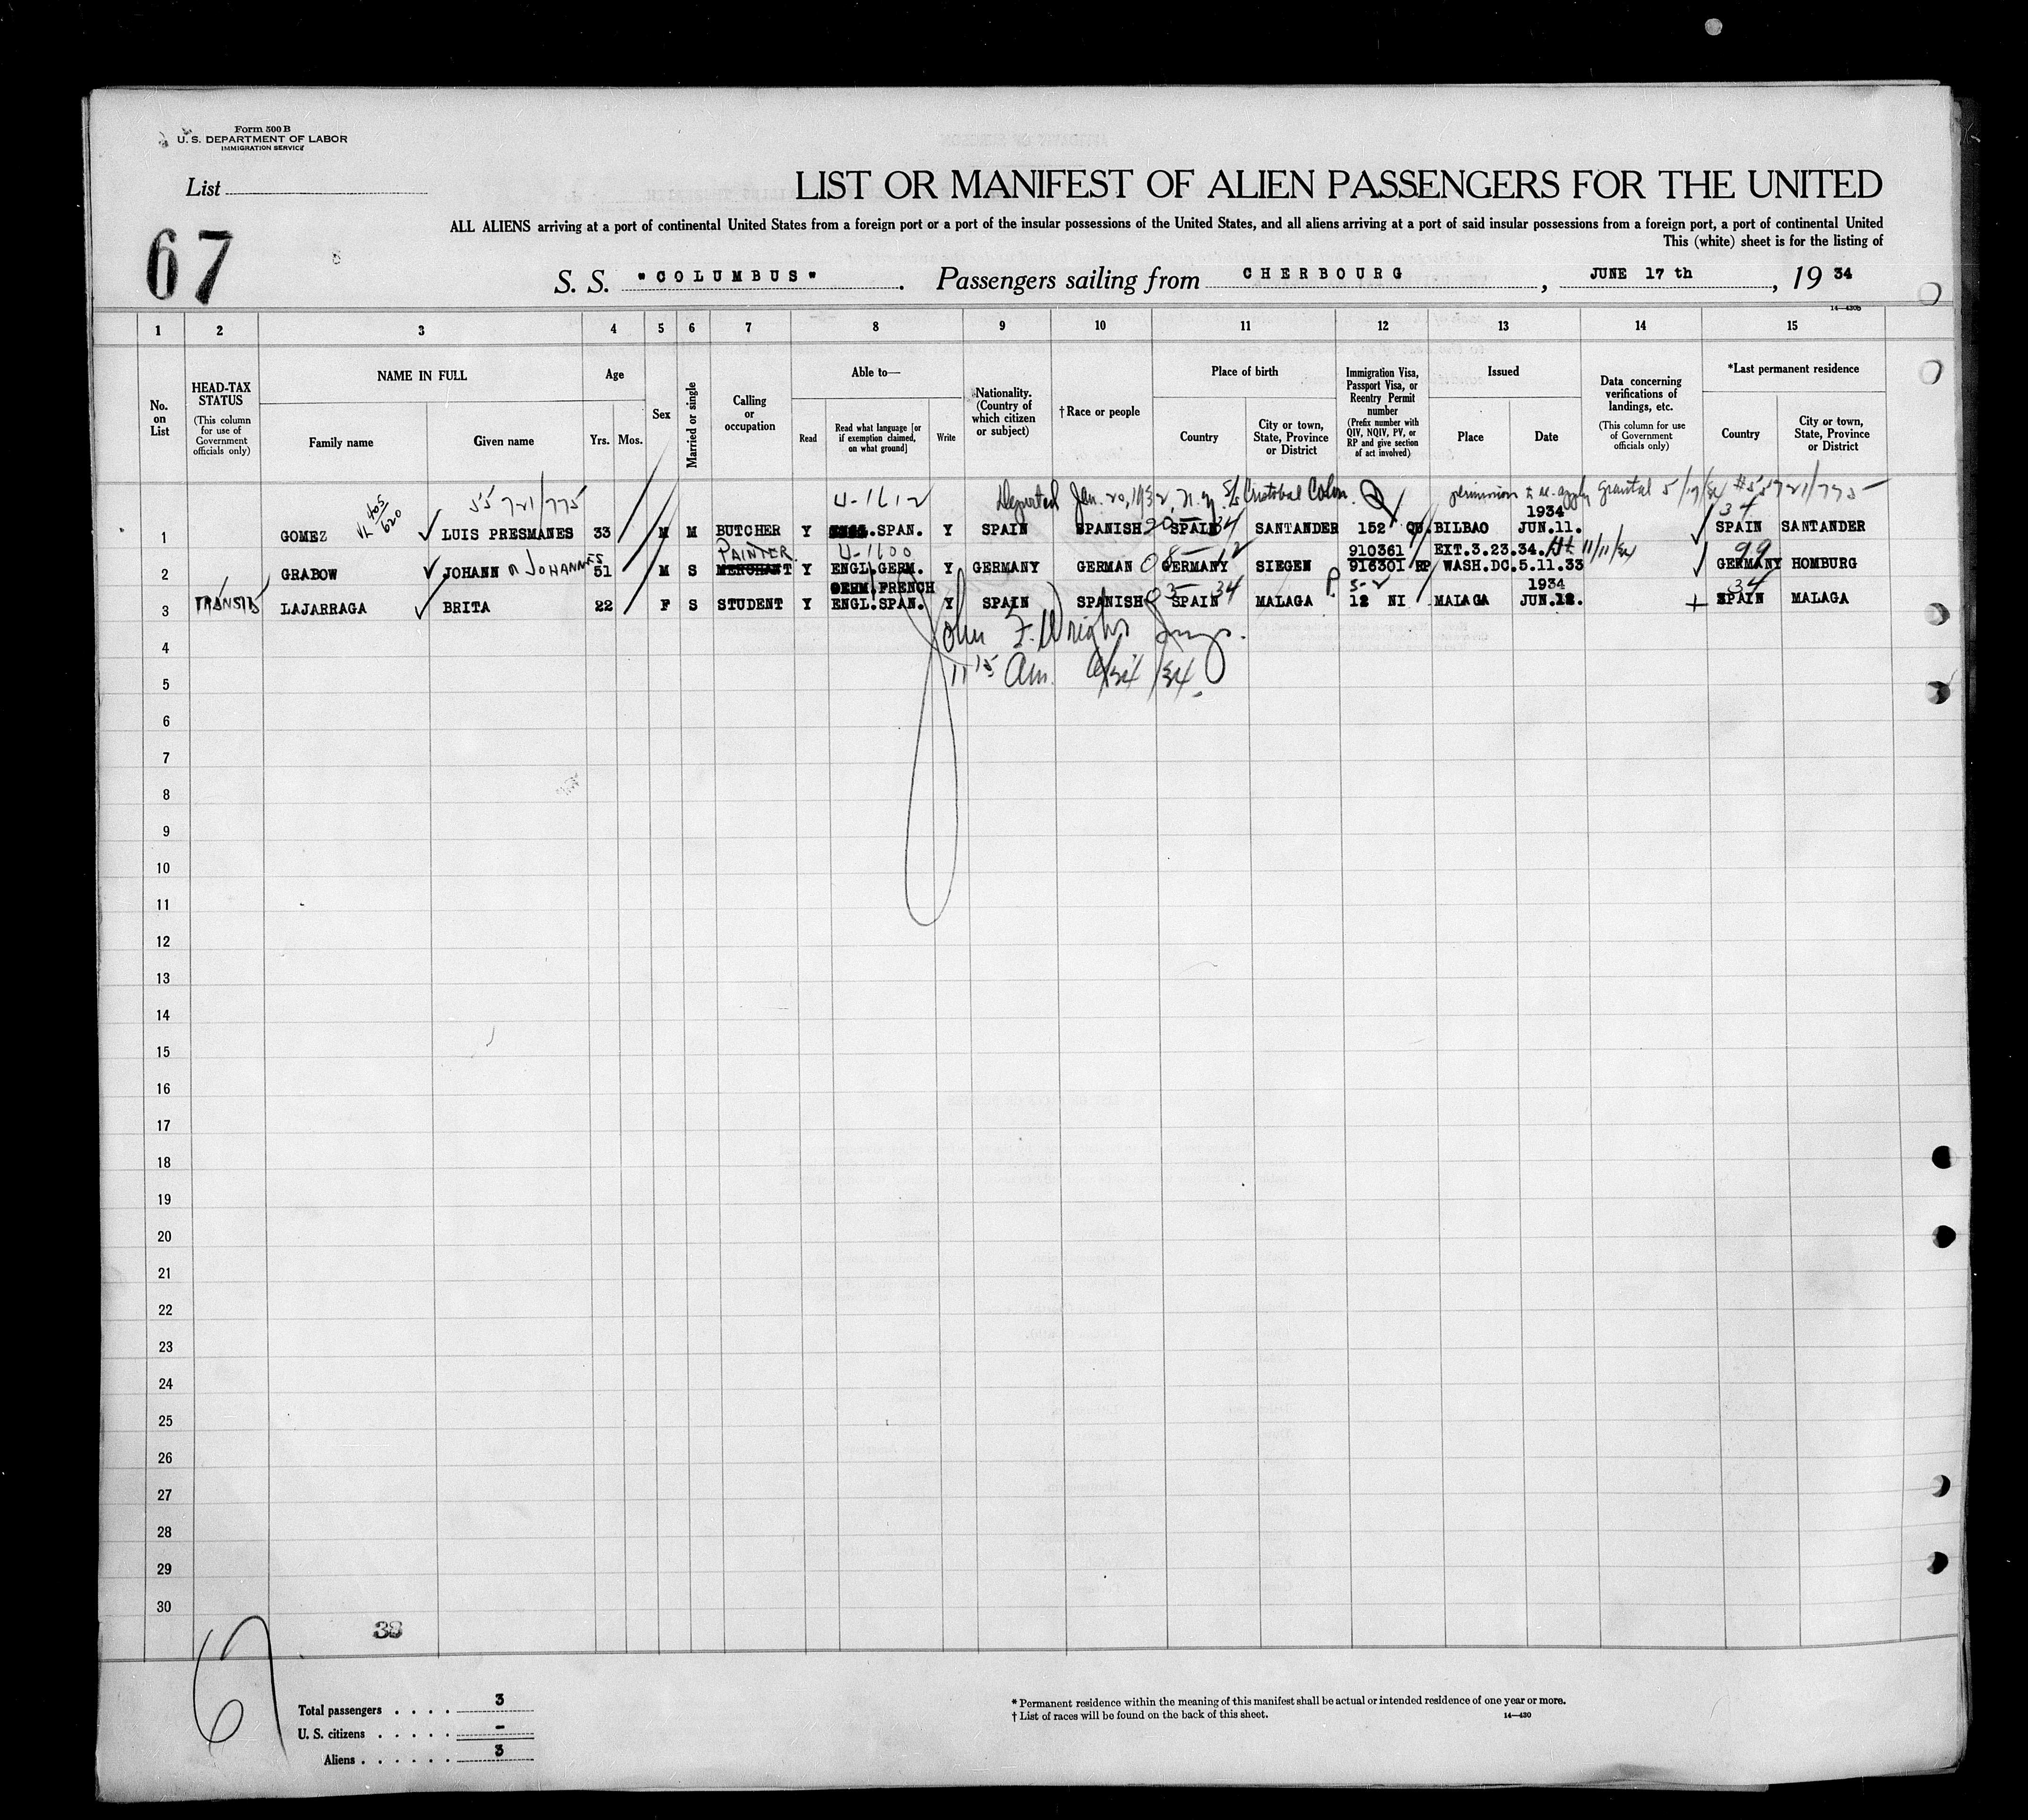 Form 500 B
U. S. DEPARTMENT OF LABOR
IMMIGRATION SERVICE
List
LIST OR MANIFEST OF ALIEN PASSENGERS FOR THE UNITED
67
ALL ALIENS arriving at a port of continental United States from a foreign port or a port of the insular possessions of the United States, and all aliens arriving at a port of said insular possessions from a foreign port, a port of continental United
This (white) sheet is for the listing of
S. S. "COLUMBUS". Passengers sailing from CHERBOURG, JUNE 17 th, 19 34
14—430B
1 2 3 4 5 6 7 8 9 10 11 12 13 14 15
No. on List
HEAD-TAX STATUS
(This column for use of Government officials only)
NAME IN FULL
Family name Given name
Age
Yrs. Mos.
Sex
Married or single
Calling or occupation
Able to—
Read
Read what language [or if exemption claimed, on what ground]
Write
Nationality. (Country of which citizen or subject)
† Race or people
Place of birth
Country
City or town, State, Province or District
Immigration Visa, Passport Visa, or Reentry Permit number
(Prefix number with QIV, NQIV, PV, or RP and give section of act involved)
Issued
Place Date
Data concerning verifications of landings, etc.
(This column for use of Government officials only)
*Last permanent residence
Country
City or town, State, Province or District
55721/775 U-1612 Deported Jan. 20, 1932, N.Y. S/S Cristobal Colon. permission to re-apply granted 5/19/34 #55721/775
VL 405/620
1934 34
1 GOMEZ LUIS PRESMANES 33 M M BUTCHER Y SPAN. Y SPAIN SPANISH SPAIN 34 SANTANDER 152 QU. BILBAO JUN.11. SPAIN SANTANDER
PAINTER U-1600 910361 EXT.3.23.34. 11/11/34 99
2 GRABOW JOHANN JOHANNES 51 M S MERCHANT Y ENGL.GERM. Y GERMANY GERMAN GERMANY SIEGEN 916301 RP WASH.DC.5.11.33 GERMANY HOMBURG
GERM.FRENCH 5-2 1934 34
TRANSIT
3 LAJARRAGA BRITA 22 F S STUDENT Y ENGL.SPAN. Y SPAIN SPANISH 05 SPAIN 34 MALAGA P. 12 NI MALAGA JUN.12. SPAIN MALAGA
John F. Wright Insp.
4
11 15 Am. 6/24/34.
5
6
7
8
9
10
11
12
13
14
15
16
17
18
19
20
21
22
23
24
25
26
27
28
29
30
Total passengers . . . . 3
U. S. citizens . . . . . –
Aliens . . . . . . 3
* Permanent residence within the meaning of this manifest shall be actual or intended residence of one year or more.
† List of races will be found on the back of this sheet.
14—430